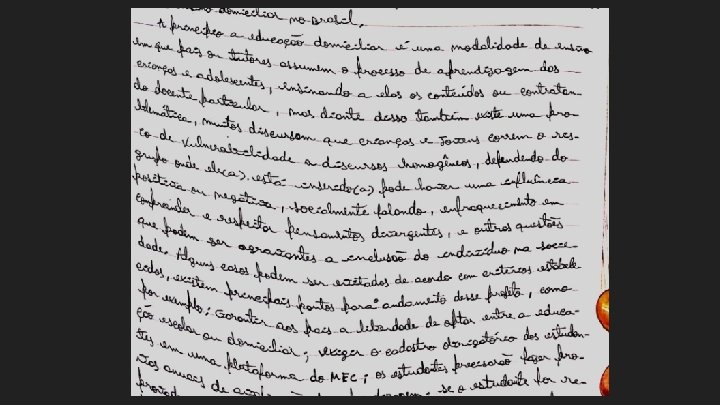 domiciliar no Brasil.
A princípio a educação domiciliar é uma modalidade de ensino
em que pais ou tutores assumem o processo de aprendizagem dos
crianças e adolescentes, ensinando a elas os conteúdos ou contratan-
do docente particular, mas diante disso também existe uma pro-
blemática, muitos discursam que crianças e Jovens correm o ris-
co de vulnerabilidade a discursos homogêneos, dependendo do
grupo onde ele(a) está inserido(a) pode haver uma influência
positiva ou negativa, socialmente falando, enfraquecimento em
compreender e respeitar pensamentos divergentes, e outros questões
que podem ser agravantes a inclusão do indivíduo na socie-
dade. Alguns casos podem ser evitados de acordo com critérios estabele-
cidos, existem principais pontos para andamento desse projeto, como
por exemplo: Garantir aos pais a liberdade de optar entre a educa-
ção escolar ou domiciliar; exigir o cadastro obrigatório dos estudan-
tes em uma plataforma do MEC; os estudantes precisarão fazer pro-
vas anuais de se o estudante for re-
provado